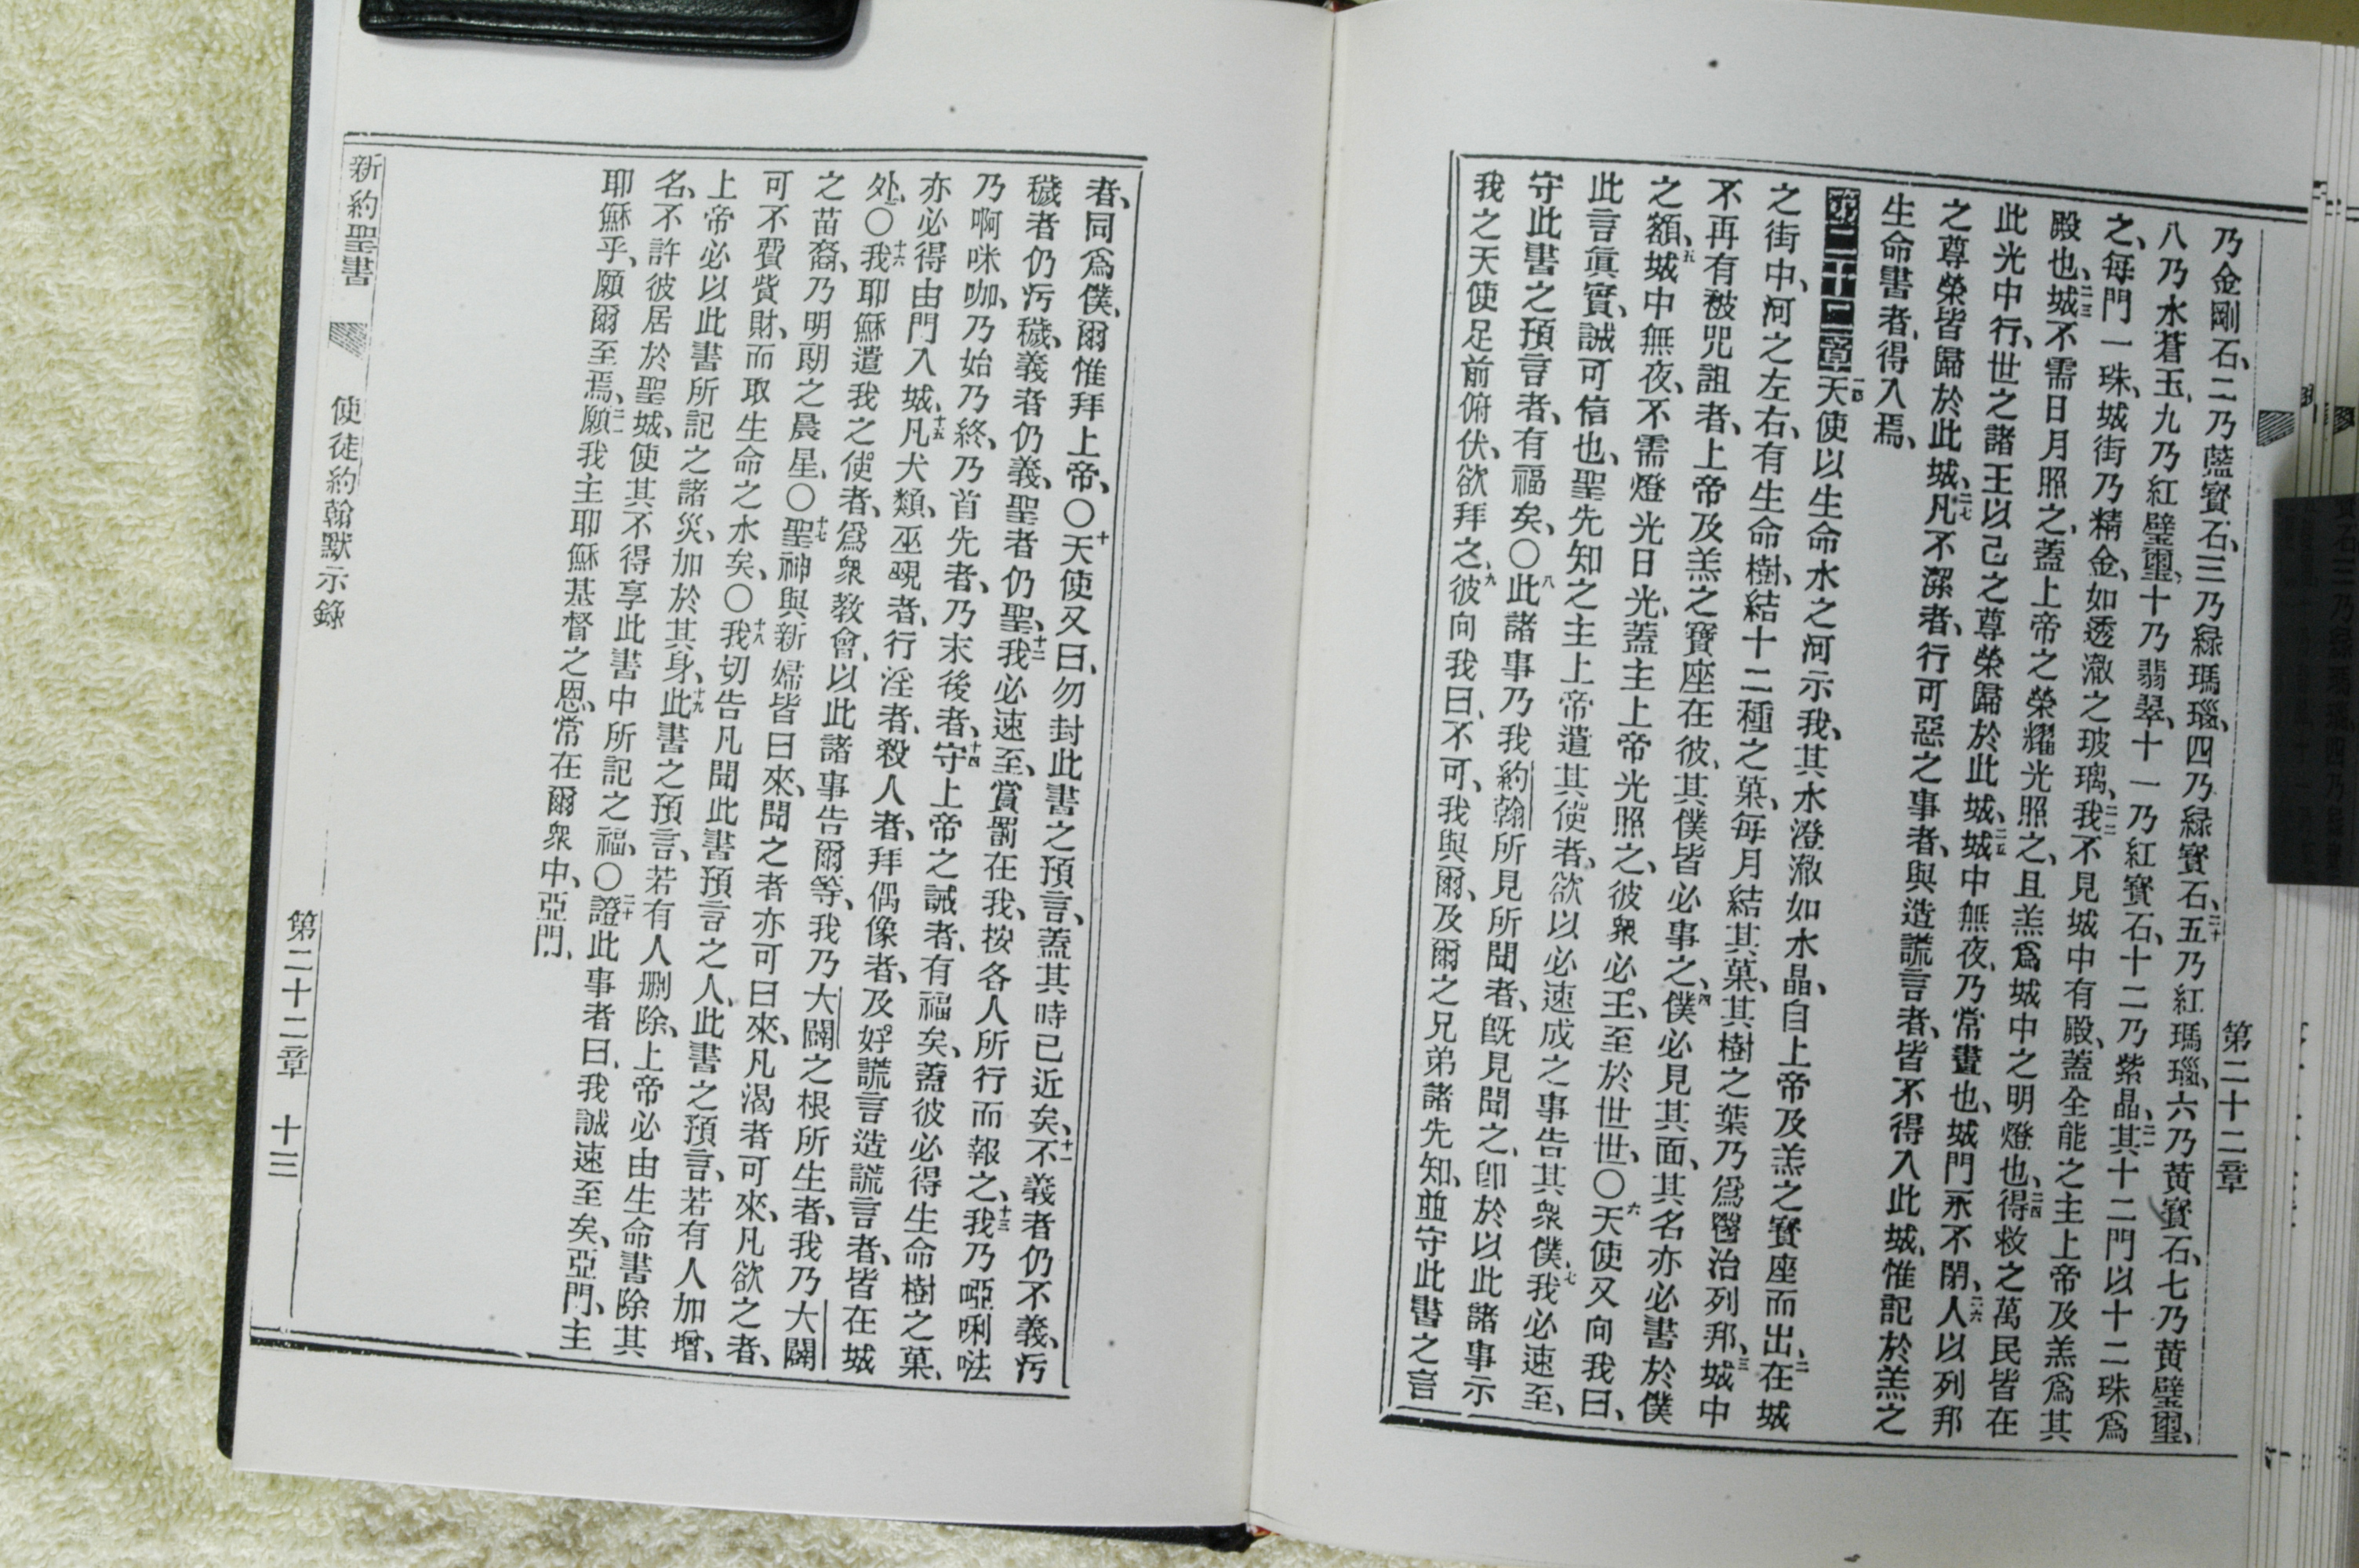 第二十二章
乃金剛石、二乃藍寶石、三乃緑瑪瑙、四乃緑寶石、二十五乃紅瑪瑙、六乃黄寶石、七乃黄璧璽、
八乃水蒼玉、九乃紅璧璽、十乃翡翠、十一乃紅寶石、十二乃紫晶、二一其十二門以十二珠爲
之、每門一珠、城街乃精金、如透澈之玻璃、二二我不見城中有殿、蓋全能之主上帝及羔爲其
殿也、二三城不需日月照之、蓋上帝之榮耀光照之、且羔爲城中之明燈也、二四得救之萬民皆在
此光中行、世之諸王以己之尊榮歸於此城、二五城中無夜、乃常晝也、城門永不閉、二六人以列邦
之尊榮皆歸於此城、二七凡不潔者、行可惡之事者、與造謊言者、皆不得入此城、惟記於羔之
生命書者、得入焉、
第二十二章一天使以生命水之河示我、其水澄澈如水晶、自上帝及羔之寶座而出、二在城
之街中、河之左右、有生命樹、結十二種之菓、每月結其菓、其樹之葉乃爲醫治列邦、三城中
不再有被咒詛者、上帝及羔之寶座在彼、其僕皆必事之、四僕必見其面、其名亦必書於僕
之額、五城中無夜、不需燈光日光、蓋主上帝光照之、彼衆必王、至於世世、〇六天使又向我曰、
此言眞實、誠可信也、聖先知之主上帝遣其使者、欲以必速成之事告其衆僕、七我必速至、
守此書之預言者、有福矣、〇八此諸事乃我約翰所見所聞者、旣見聞之、卽於以此諸事示
我之天使足前俯伏、欲拜之、九彼向我曰、不可、我與爾、及爾之兄弟諸先知、並守此書之言
者、同爲僕、爾惟拜上帝、〇十天使又曰、勿封此書之預言、蓋其時已近矣、十一不義者仍不義、汚
穢者仍汚穢、義者仍義、聖者仍聖、十二我必速至、賞罰在我、按各人所行而報之、十三我乃啞唎咓
乃啊咪咖、乃始乃終、乃首先者、乃末後者、十四守上帝之誡者、有福矣、蓋彼必得生命樹之菓、
亦必得由門入城、十五凡犬類、巫覡者、行淫者、殺人者、拜偶像者、及好謊言造謊言者、皆在城
處、〇十六我耶穌遣我之使者、爲衆教會、以此諸事告爾等、我乃大闢之根所生者、我乃大闢
之苗裔、乃明朗之晨星、〇十七聖神與新婦皆曰來、聞之者亦可曰來、凡渴者可來、凡欲之者、
可不費貲財、而取生命之水矣、〇十八我切告凡聞此書預言之人、此書之預言、若有人加增、
上帝必以此書所記之諸災、加於其身、十九此書之預言、若有人刪除、上帝必由生命書除其
名、不許彼居於聖城、使其不得享此書中所記之福、〇二十證此事者曰、我誠速至矣、亞門、主
耶穌乎、願爾至焉、二一願我主耶穌基督之恩、常在爾衆中、亞門、
新約聖書 使徒約翰默示錄 第二十二章 十三